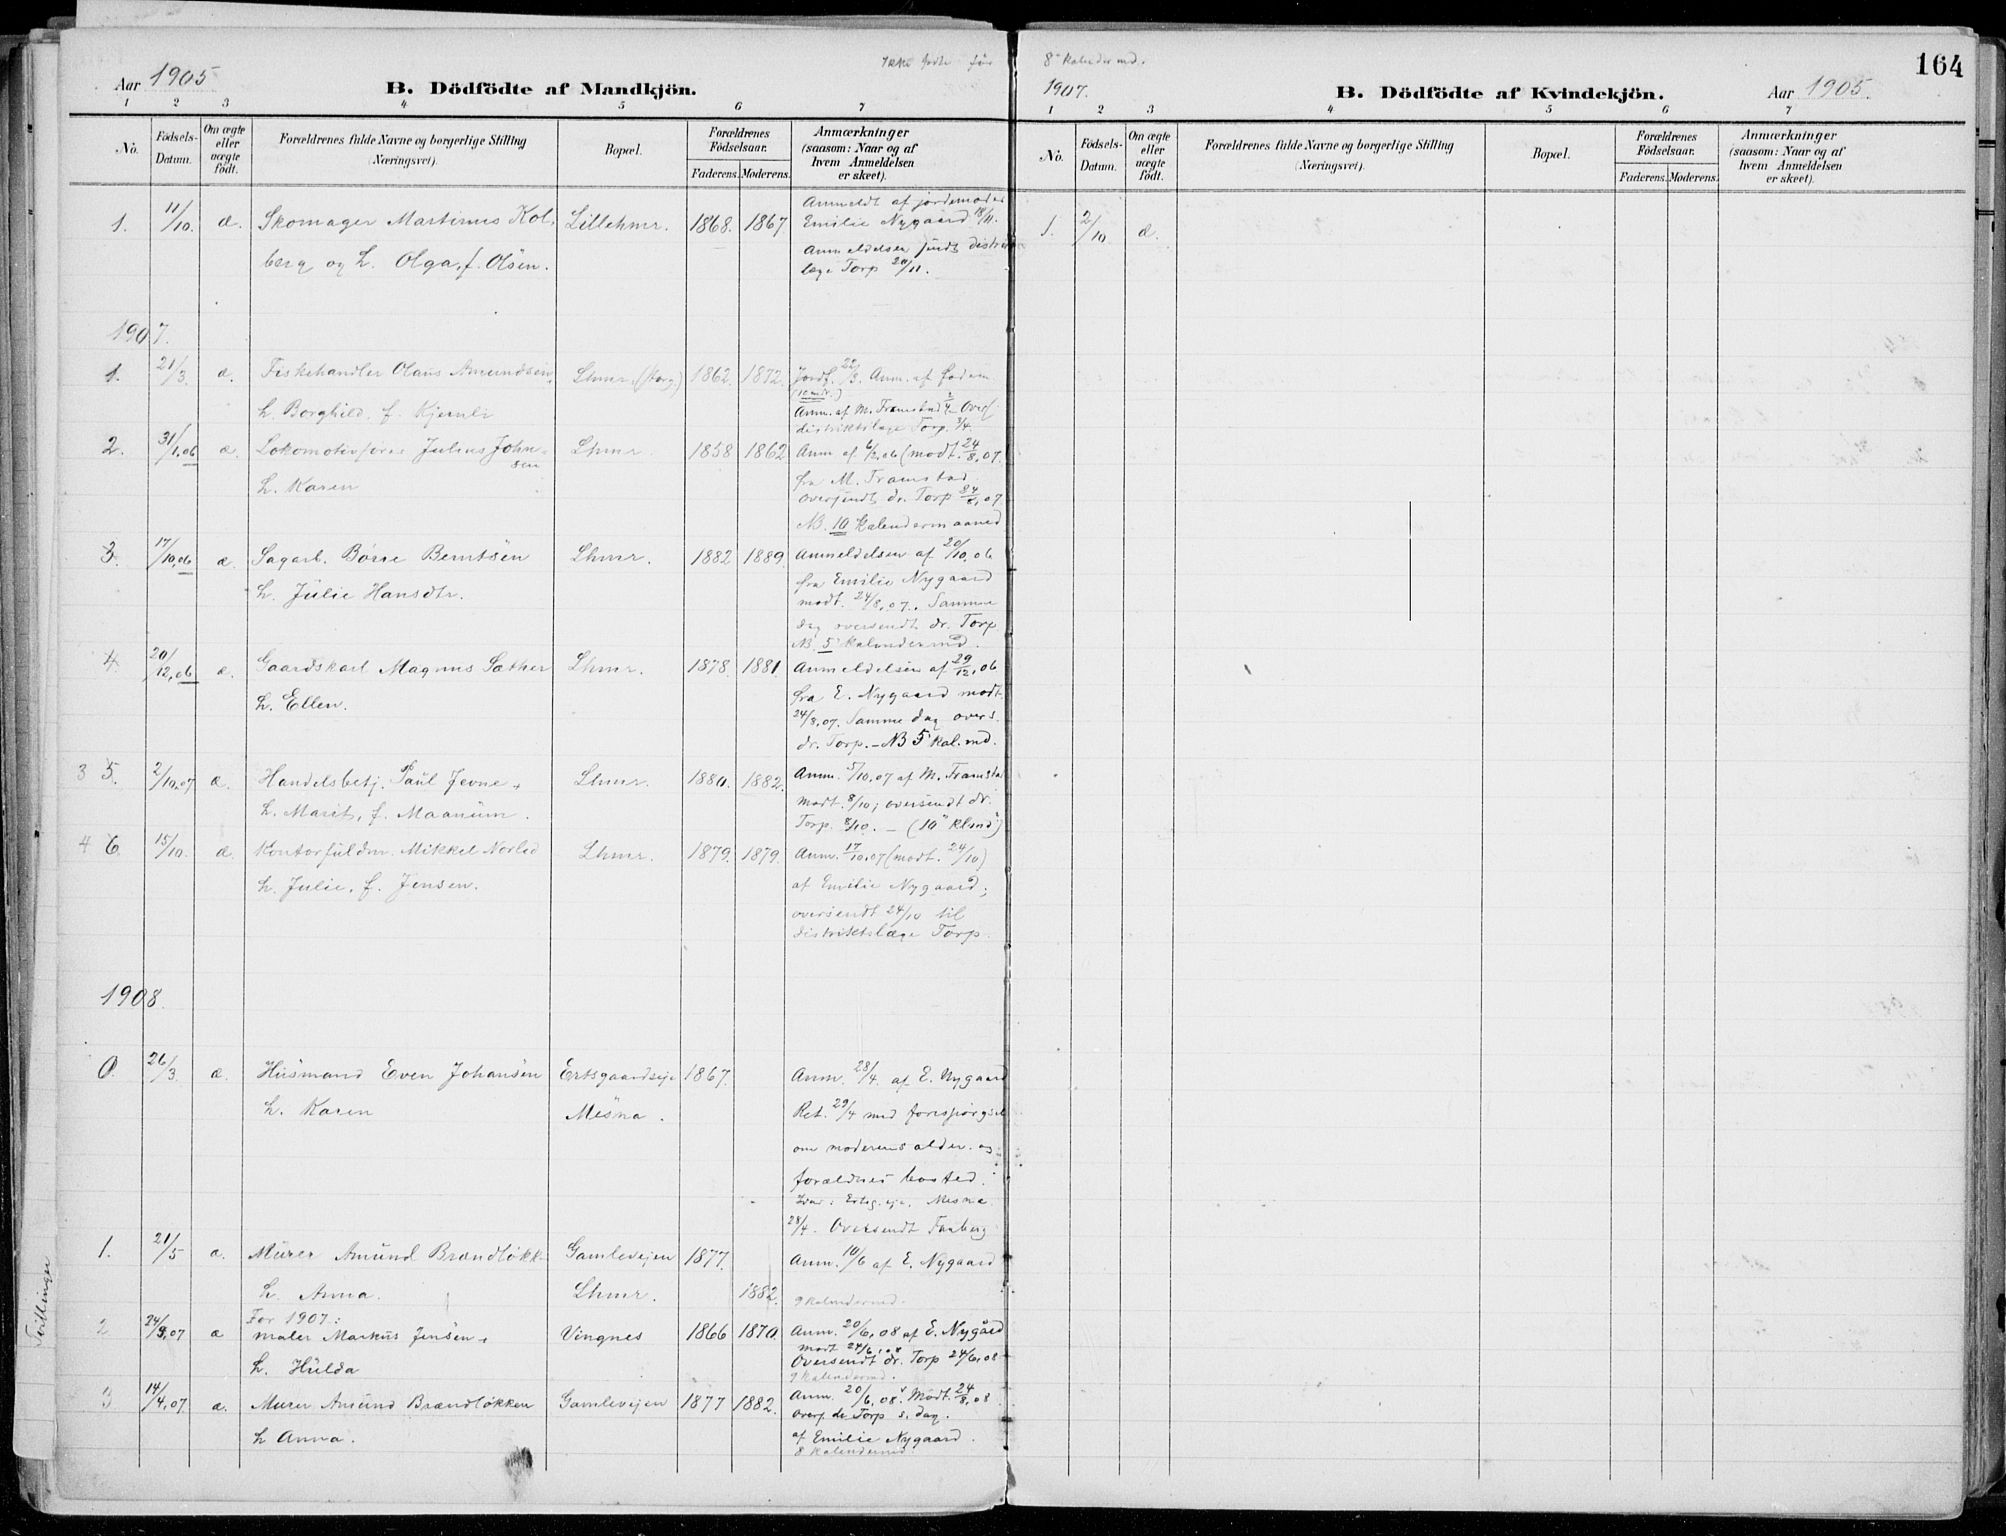 164
Aar 1905
B. Dödfödte af Mandkjön.
1 2 3 4 5 6 7
No.
Födsels-Datum.
Om ægte eller uægte födt.
Forældrenes fulde Navne og borgerlige Stilling
(Næringsvei).
Bopæl.
Forældrenes Födselsaar.
Faderens. Moderens.
Anmærkninger
(saasom: Naar og af
hvem Anmeldelsen
er skeet).
1. 11/10. æ. Skomager Martinus Kol- Lillehmr. 1868. 1867
berg og h. Olga, f. Olsen.
Anmeldt af jordemoder
Emilie Nygaard 18/11.
Anmeldelsen sendt distrikts
læge Torp 20/11.
1907.
1. 21/3. æ. Fiskehandler Olaus Amundsen, Lhmr. 1862. 1872. Jordf. 22/3. Anm. af
h. Borghild, f. Kjernli
(10 mdr.)
Anm. af M. Framstad 2/4 Overs.
distriktslæge Torp. 3/4.
2. 31/1.06 æ. Lokomotivfører Julius John- Lhmr. 1858 1862 Anm af 6/2.06 (modt. 24/8.07.
sen
h. Karen
fra M. Framstad
oversendt dr. Torp 24/8.07
NB. 10 kalendermaaned
3. 17/10.06 æ. Sagarb. Børre Berntsen Lhmr. 1882 1889. Anmeldelsen af 20/10.06
h. Julie Hansdtr.
fra Emilie Nygaard
modt. 24/8.07. Samme
dag oversendt dr. Torp
NB. 5 kalendermd.
4. 20/12.06 æ. Gaardskarl Magnus Sæther Lhmr. 1878. 1881. Anmeldelsen af 29/12.06
h. Ellen.
fra E. Nygaard modt.
24/8.07. Samme dag overs.
dr. Torp. – NB 5 kal.md.
3 5. 2/10.07 æ. Handelsbetj. Paul Jevne + Lhmr. 1880. 1882. Anm. 5/10.07 af M. Framstad
h. Marit, f. Maanum.
modt. 8/10; oversendt dr.
Torp. 8/10. – (10 klmd)
4 6. 15/10. æ. Kontorfuldm. Mikkel Norlid Lhmr. 1879. 1879. Anm. 17/10.07 (modt. 24/10)
h. Julie, f. Jensen.
af Emilie Nygaard;
oversendt 24/10 til
distriktslæge Torp.
1908.
0. 26/3. æ. Husmand Even Johansen Ertsgaardseje 1867. Anm. 28/4. af E. Nygaard
h. Karen Mesna.
Ret. 29/4 med forespørgsel
om moderens alder og
forældrenes bosted.
Svar: Ertsg.eje, Mesna
28/4. Oversendt Faaberg
1. 21/5 æ. Murer Amund Brændløkk- Gamlevejen 1877. Anm. 10/6 af E. Nygaard
h. Anna. Lhmr. 1882.
9 kalendermd.
For 1907:
2 24/9.07 æ maler Markus Jensen + Vingnes 1866 1870. Anm. 20/6.08 af E. Nygård
h. Hulda
modt 24/6.08
Oversendt dr. Torp 24/6.08
9 kalendermd.
3 14/4.07. æ. Murer Amund Brændløkken Gamlevejen 1877 1882. Anm. 20/6.08. Modt. 24/8.08
h Anna.
overs. dr Torp s. dag.
af Emilie Nygaard.
8 kalendermd.
Tvillinger
Ikke fødte før 8 kalendermd.
1907.
B. Dödfödte af Kvindekjön.
Aar 1905.
1 2 3 4 5 6 7
No.
Födsels-Datum.
Om ægte eller uægte födt.
Forældrenes fulde Navne og borgerlige Stilling
(Næringsvei).
Bopæl.
Forældrenes Födselsaar.
Faderens. Moderens.
Anmærkninger
(saasom: Naar og af
hvem Anmeldelsen
er skeet).
1. 2/10 æ.